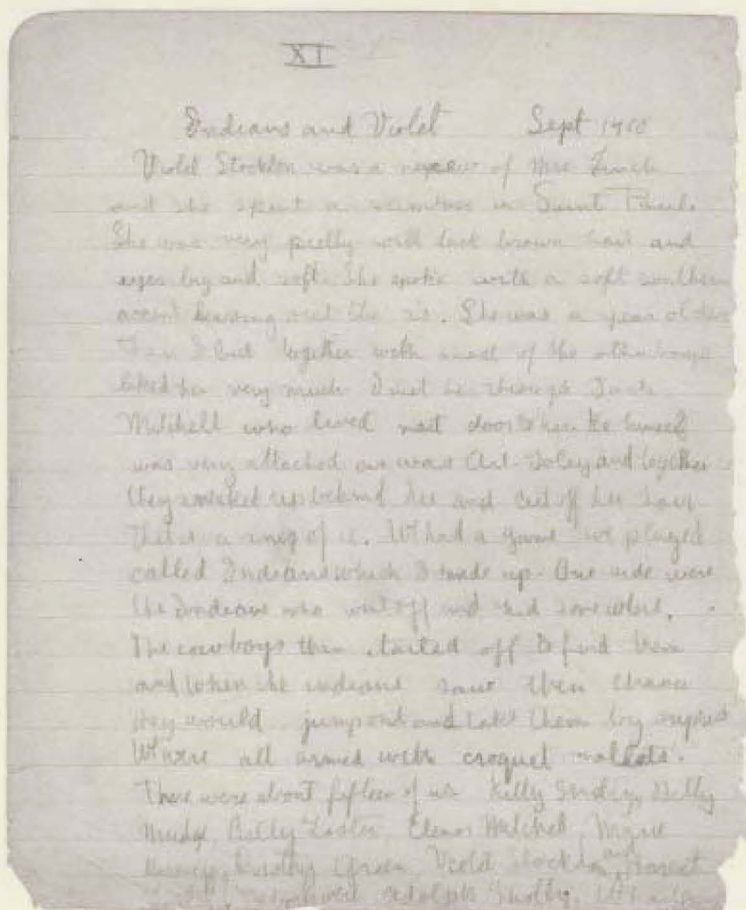 XI
Indians and Violet Sept 1910
Violet Stockton was a of Mrs Finch
and she spent a summer in Saint Paul.
She was very pretty with dark brown hair and
eyes big and soft. She spoke with a soft southern
accent leaving out the r's. She was a year older
than I but together with most of the other boys
liked her very much I met her through Jack
Mitchell who lived next door to her. He himself
was very attached as was Art Foley and together
they sneaked up behind her and cut off her hair
That is a snip of it. We had a game we played
called Indians which I made up. One side were
the Indians who went off and hid somewhere.
The cowboys then started off to find them
and when the indians saw their chance
they would jump out and take them by suprise
We were all armed with croquet mallets.
There were about fifteen of us Kitty Billy
Mudge, Betty Foster, Elenor Mitchell,
Dorothy Green, Violet Stockton and Harriet
Adolph Shelby,